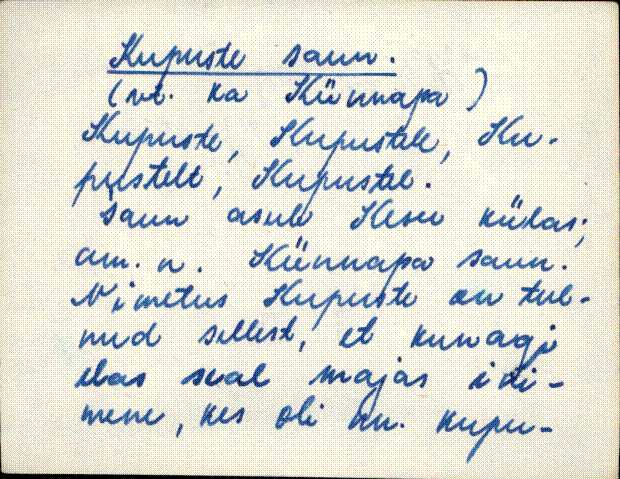 Kupuste saun.
(vt. ka Künnapa)
Kupuste, Kupustele, Ku-
pustelt, Kupustel.
Saun asub Kesu külas;
am. n. Künnapa saun.
Nimetus Kupuste on tul-
nud sellest, et kunagi
elas seal majas ini-
mene, kes oli nn. kupu-